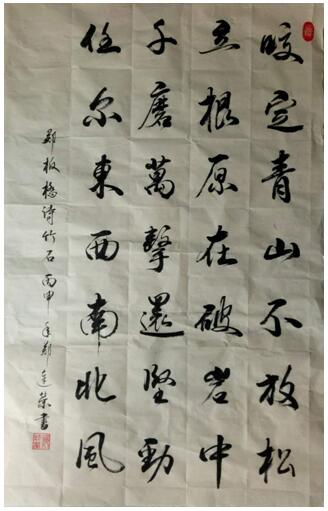 咬定青山不放松
立根原在破岩中
千磨萬擊還堅勁
任尔東西南北風
鄭板橋詩竹石丙申年鄭榮書